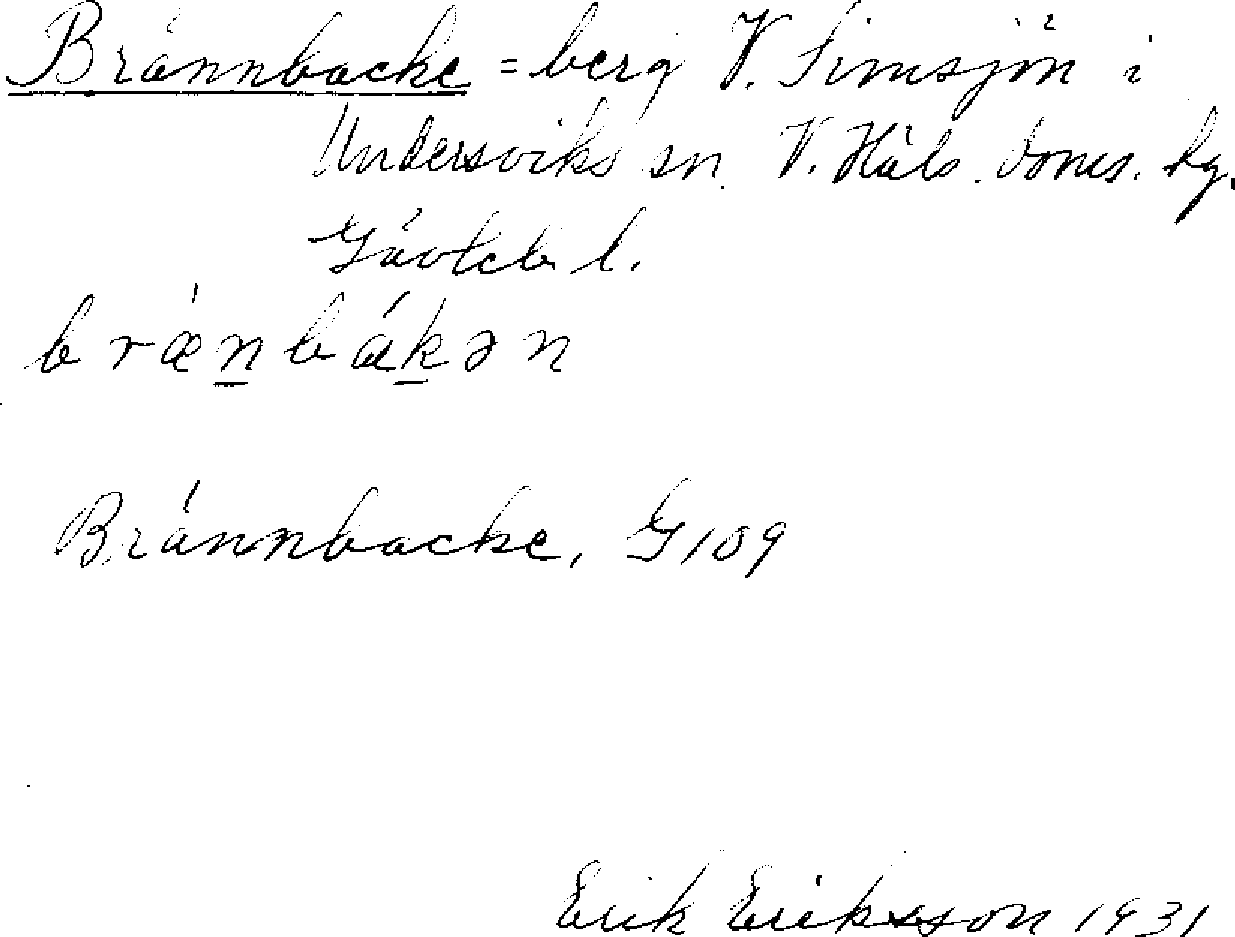 Brännbacke = berg V. Simsjön i
Undersviks sn. V. Häls. doms. hg.
Gävleb. l.
bræ̀nbákən
Brännbacke, G109
Erik Eriksson 1931